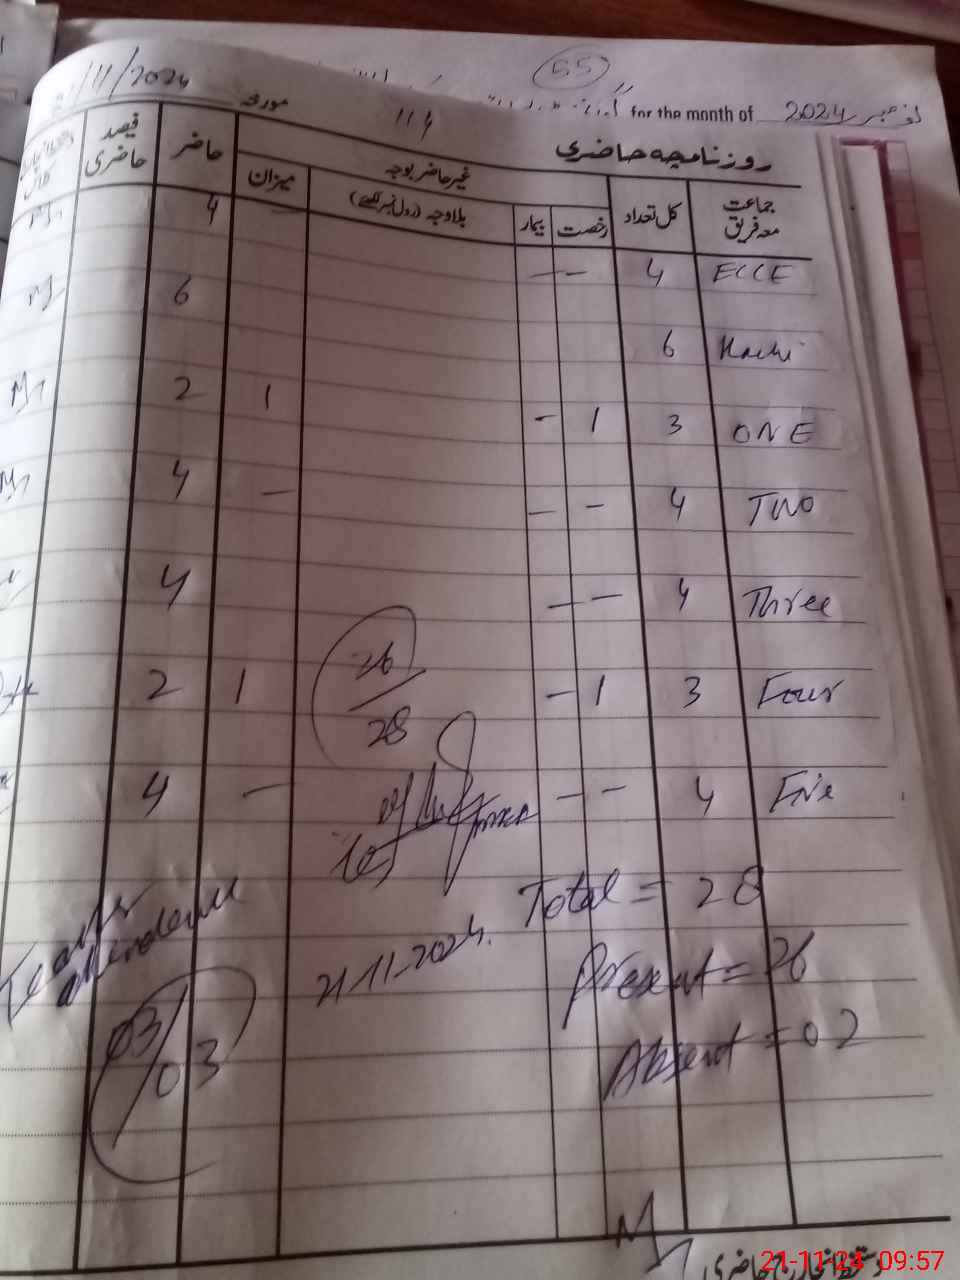 55
for the month of 2024 نومبر
/11/2024 مورخہ
روزنامچہ حاضری
جماعت معہ فریق کل تعداد رخصت بیمار غیر حاضر بوجہ بلاوجہ (رول نمبر لکھیے) میزان حاضر فیصد حاضری
ECCE 4 - - - 4
Kachi 6 6
ONE 3 1 - 1 2
TWO 4 - - - 4
Three 4 - - 4
Four 3 1 - 1 2
Five 4 - - - 4
26
28
Total = 28
Present = 26
Absent = 02
21-11-2024.
Teacher
attendance
03/03
انچارج حاضری
21-11-24 09:57